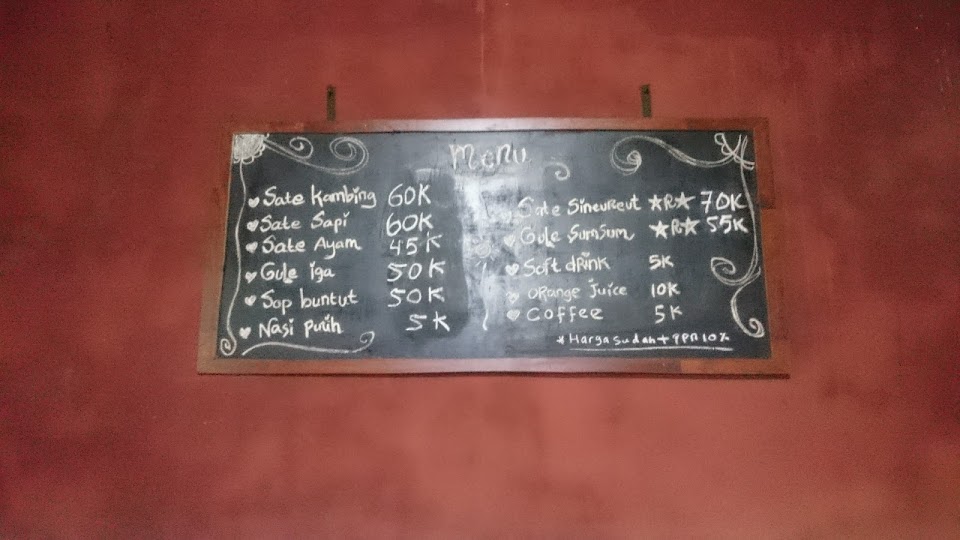 Menu
Sate Kambing 60K
Sate Sapi 60K
Sate Ayam 45K
Gule iga 50K
Sop buntut 50K
Nasi Putih 5K
Sate Sineureut ★R★ 70K
Gule Sumsum ★R★ 55K
Soft dRink 5K
ORange Juice 10K
Coffee 5K
* Harga sudah + PPN 10%